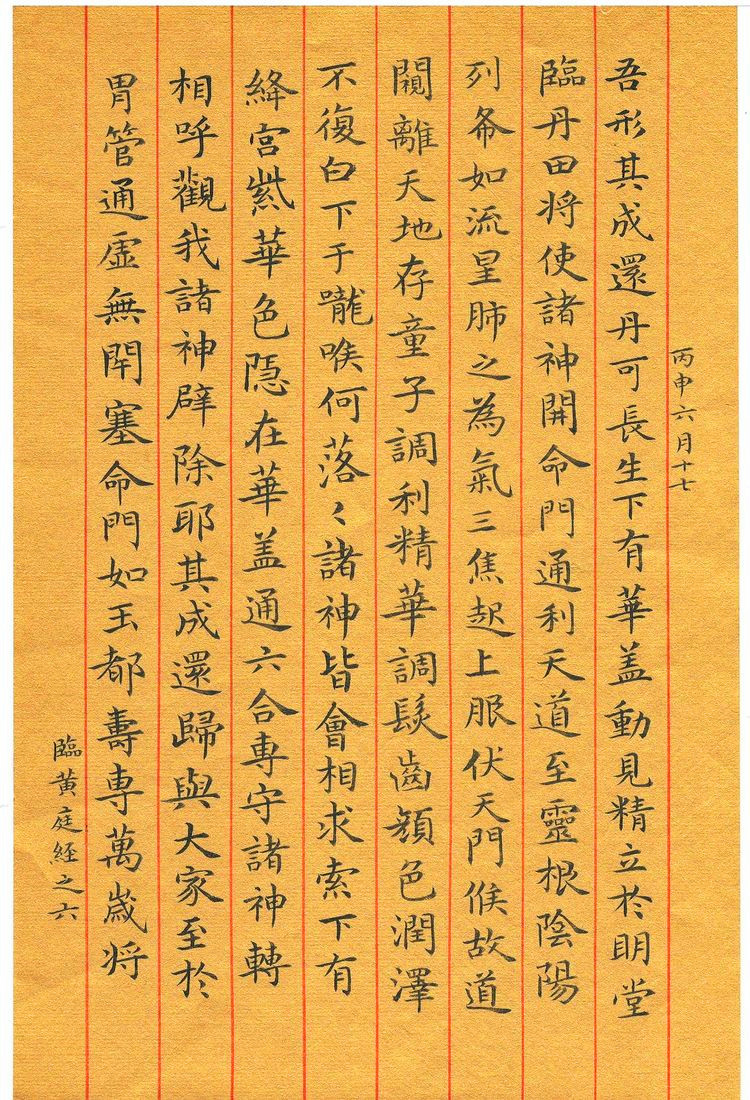 丙申六月十七
吾形其成還丹可長生下有華盖動見精立於明堂
臨丹田将使諸神開命門通利天道至靈根陰陽
列布如流星肺之為氣三焦起上服伏天門候故道
闚離天地存童子調利精華調髮齒顔色潤澤
不復白下于嚨喉何落〻諸神皆會相求索下有
絳宫紫華色隠在華盖通六合専守諸神轉
相呼觀我諸神辟除耶其成還歸與大家至於
胃管通虚無閉塞命門如玉都壽専萬歳将
臨黄庭経之六